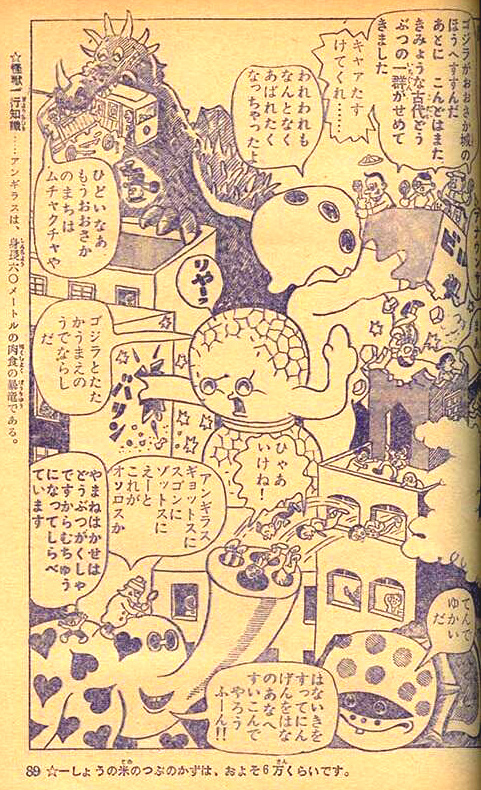 ゴジラがおおさか城の
ほうへすすんだ
あとに こんどはまた
きみょうな古代どう
ぶつの一群がせめて
きました
キャアたす
けてくれ……
われわれも
なんとなく
あばれたく
なっちゃったよ
ひどいなあ
もうおおさか
のまちは
ムチャクチャや
りゃーっ
ゴジラとたた
かうまえの
うでならし
だ
バリン
ひゃあ
いけね!
アンギラス
ギョットスに
スゴンに
ゾットスに
えーと
これが
オソロスか
やまねはかせは
どうぶつがくしゃ
ですからむちゅう
になってしらべ
ています
てんで
ゆかい
だ
はないきを
すってにん
げんをはな
のあなへ
すいこんで
やろう
ふーん!!
☆怪獣一行知識……アンギラスは、身長六〇メートルの肉食の暴竜である。
89 ☆一しょうの米のつぶのかずは、およそ6万くらいです。